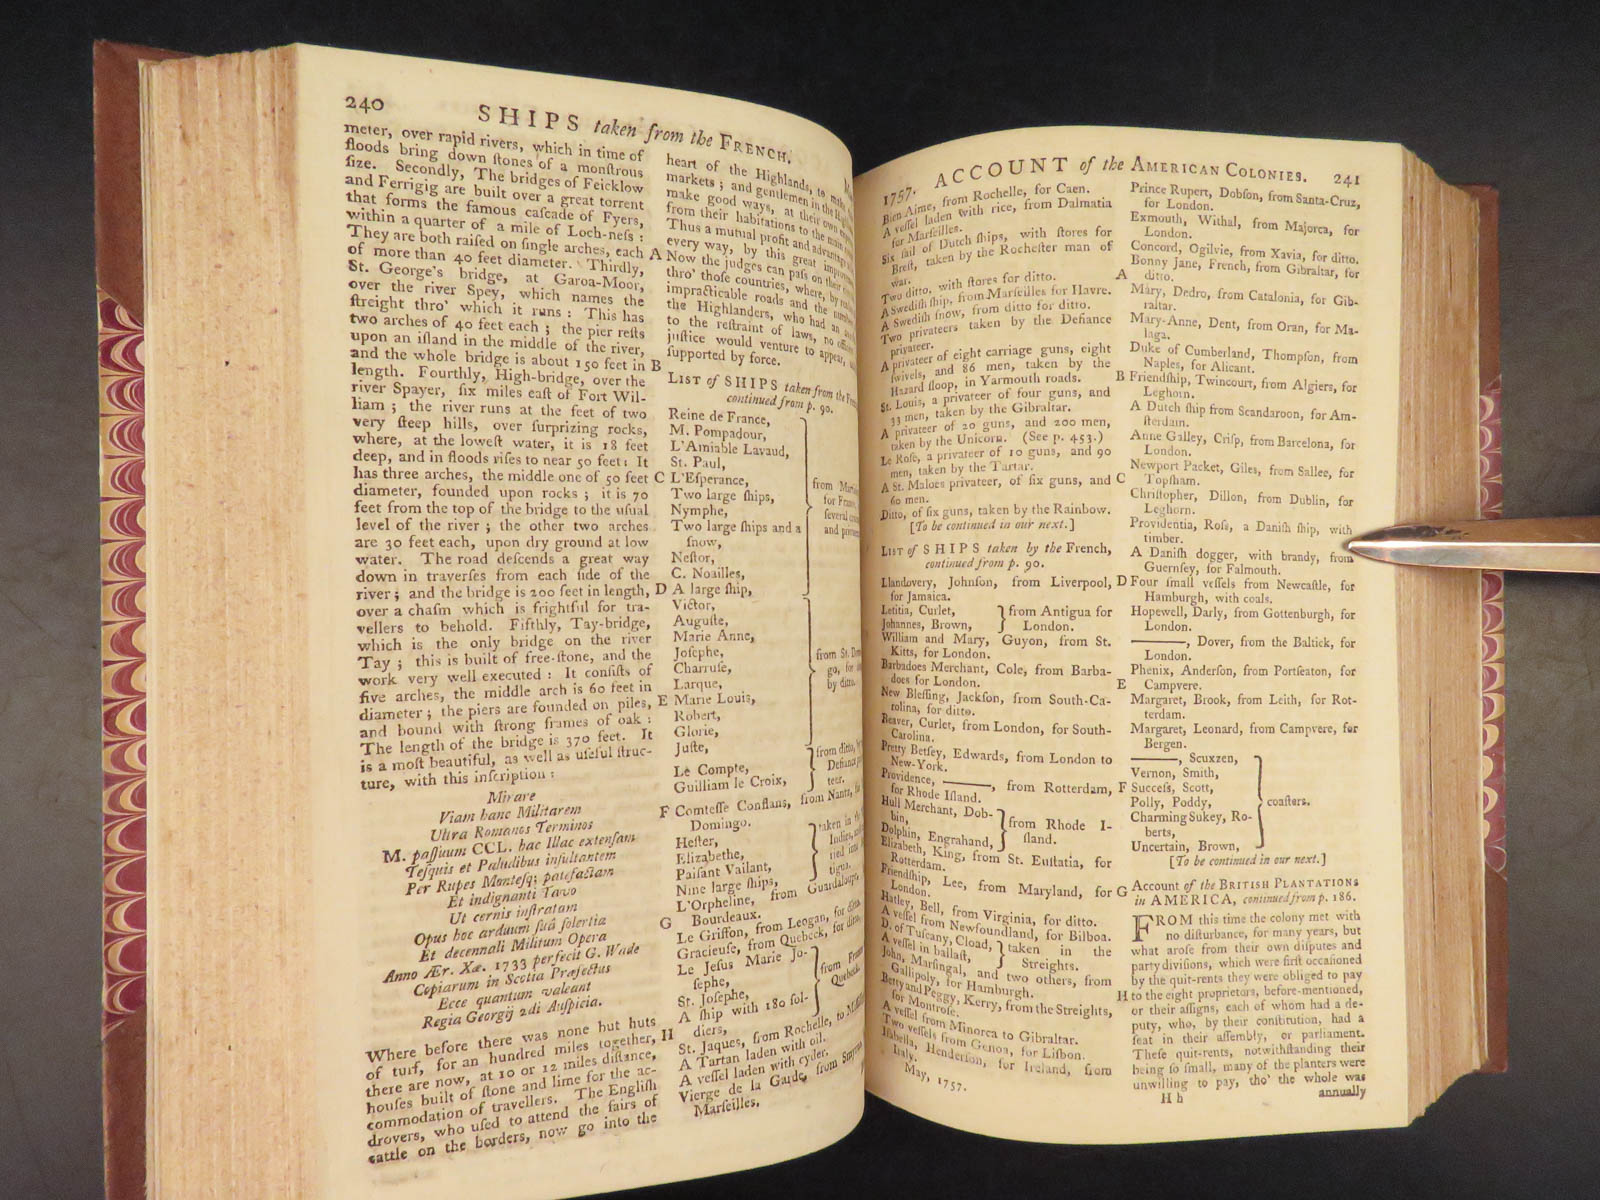 240
SHIPS taken from the FRENCH.
meter, over rapid rivers, which in time of
floods bring down ſtones of a monſtrous
ſize. Secondly, The bridges of Feicklow
and Ferrigig are built over a great torrent
that forms the famous caſcade of Fyers,
within a quarter of a mile of Loch-neſs :
They are both raiſed on ſingle arches, each
of more than 40 feet diameter. Thirdly,
St. George's bridge, at Garoa-Moor,
over the river Spey, which names the
ſtreight thro' which it runs : This has
two arches of 40 feet each ; the pier reſts
upon an iſland in the middle of the river,
and the whole bridge is about 150 feet in
length. Fourthly, High-bridge, over the
river Spayer, ſix miles eaſt of Fort Wil-
liam ; the river runs at the feet of two
very ſteep hills, over ſurprizing rocks,
where, at the loweſt water, it is 18 feet
deep, and in floods riſes to near 50 feet : It
has three arches, the middle one of 50 feet
diameter, founded upon rocks ; it is 70
feet from the top of the bridge to the uſual
level of the river ; the other two arches
are 30 feet each, upon dry ground at low
water. The road deſcends a great way
down in traverſes from each ſide of the
river ; and the bridge is 200 feet in length,
over a chaſm which is frightful for tra-
vellers to behold. Fifthly, Tay-bridge,
which is the only bridge on the river
Tay ; this is built of free-ſtone, and the
work very well executed : It conſiſts of
five arches, the middle arch is 60 feet in
diameter ; the piers are founded on piles,
and bound with ſtrong frames of oak :
The length of the bridge is 370 feet. It
is a moſt beautiful, as well as uſeful ſtruc-
ture, with this inſcription :
Mirare
Viam hanc Militarem
Ultra Romanos Terminos
M. paſſuum CCL. hac Illac extenſam
Teſquis et Paludibus inſultantem
Per Rupes Monteſq; patefactam
Et indignanti Tavo
Ut cernis inſtratam
Opus hoc arduum ſuâ ſolertia
Et decennali Militum Opera
Anno Ær. Xæ. 1733 perfecit G. Wade
Copiarum in Scotia Præfectus
Ecce quantum valeant
Regia Georgij 2di Auſpicia.
Where before there was none but huts
of turf, for an hundred miles together,
there are now, at 10 or 12 miles diſtance,
houſes built of ſtone and lime for the ac-
commodation of travellers. The Engliſh
drovers, who uſed to attend the fairs of
cattle on the borders, now go into the
heart of the Highlands, to
markets ; and gentlemen in the
make good ways, at their own
from their habitations to the main
Thus a mutual profit and
every way, by this great
A Now the judges can paſs on their
thro' thoſe countries, where, by
impracticable roads and the
the Highlanders, who had an
to the reſtraint of laws, no
juſtice would venture to appear,
B ſupported by force.
LIST of SHIPS taken from the
continued from p. 90.
Reine de France,
M. Pompadour,
L'Amiable Lavaud,
St. Paul,
C L'Eſperance,
Two large ſhips,
Nymphe,
Two large ſhips and a
ſnow,
Neſtor,
C. Noailles,
D A large ſhip,
from
for
ſeveral
and
Victor,
Auguſte,
Marie Anne,
Joſephe,
Charruſe,
Larque,
E Marie Louis,
Robert,
Glorie,
from St.
go, for
by ditto.
Juſte,
Le Compte,
Guilliam le Croix,
from ditto,
Defiance
teer.
F Comteſſe Conflans, from Nantz,
Domingo.
Heſter,
Elizabethe,
Paiſant Vaillant,
Nine large ſhips,
taken in
tigua.
L'Orpheline, from Guadaloupe,
G Bourdeaux.
Le Griffon, from Leogan, for ditto.
Gracieuſe, from Quebeck, for ditto.
Le Jeſus Marie Jo-
ſephe,
St. Joſephe,
A ſhip with 180 ſol-
H diers,
from
Quebeck.
St. Jaques, from Rochelle, to
A Tartan laden with oil.
A veſſel laden with cyder.
Vierge de la Garde, from
Marſeilles.
1757.
ACCOUNT of the AMERICAN COLONIES.
241
Bien Aime, from Rochelle, for Caen.
A veſſel laden with rice, from Dalmatia
for Marſeilles.
Six ſail of Dutch ſhips, with ſtores for
Breſt, taken by the Rocheſter man of
war.
Two ditto, with ſtores for ditto.
A Swediſh ſhip, from Marſeilles for Havre.
A Swediſh ſnow, from ditto for ditto.
Two privateers taken by the Defiance
privateer.
A privateer of eight carriage guns, eight
ſwivels, and 86 men, taken by the
Hazard ſloop, in Yarmouth roads.
St. Louis, a privateer of four guns, and
33 men, taken by the Gibraltar.
A privateer of 20 guns, and 200 men,
taken by the Unicorn. (See p. 453.)
Le Roſe, a privateer of 10 guns, and 90
men, taken by the Tartar.
A St. Maloes privateer, of ſix guns, and
60 men.
Ditto, of ſix guns, taken by the Rainbow.
[To be continued in our next.]
LIST of SHIPS taken by the French,
continued from p. 90.
Llandovery, Johnſon, from Liverpool,
for Jamaica.
Letitia, Curlet,
Johannes, Brown,
from Antigua for
London.
William and Mary, Guyon, from St.
Kitts, for London.
Barbadoes Merchant, Cole, from Barba-
does for London.
New Bleſſing, Jackſon, from South-Ca-
rolina, for ditto.
Beaver, Curlet, from London, for South-
Carolina.
Pretty Betſey, Edwards, from London to
New-York.
Providence, ———, from Rotterdam,
for Rhode Iſland.
Hull Merchant, Dob-
bin,
Dolphin, Engrahand,
from Rhode I-
ſland.
Elizabeth, King, from St. Euſtatia, for
Rotterdam.
Friendſhip, Lee, from Maryland, for
London.
Hatley, Bell, from Virginia, for ditto.
A veſſel from Newfoundland, for Bilboa.
D. of Tuſcany, Cload,
A veſſel in ballaſt,
taken in the
Streights.
John, Marſingal, and two others, from
Gallipoly, for Hamburgh.
Betty and Peggy, Kerry, from the Streights,
for Montroſe.
A veſſel from Minorca to Gibraltar.
Two veſſels from Genoa, for Liſbon.
Iſabella, Henderſon, for Ireland, from
Italy.
May, 1757.
Prince Rupert, Dobſon, from Santa-Cruz,
for London.
Exmouth, Withal, from Majorca, for
London.
Concord, Ogilvie, from Xavia, for ditto.
Bonny Jane, French, from Gibraltar, for
A ditto.
Mary, Dedro, from Catalonia, for Gib-
raltar.
Mary-Anne, Dent, from Oran, for Ma-
laga.
Duke of Cumberland, Thompſon, from
Naples, for Alicant.
B Friendſhip, Twincourt, from Algiers, for
Leghorn.
A Dutch ſhip from Scandaroon, for Am-
ſterdam.
Anne Galley, Criſp, from Barcelona, for
London.
Newport Packet, Giles, from Sallee, for
C Topſham.
Chriſtopher, Dillon, from Dublin, for
Leghorn.
Providentia, Roſe, a Daniſh ſhip, with
timber.
A Daniſh dogger, with brandy, from
Guernſey, for Falmouth.
D Four ſmall veſſels from Newcaſtle, for
Hamburgh, with coals.
Hopewell, Darly, from Gottenburgh, for
London.
———, Dover, from the Baltick, for
London.
Phenix, Anderſon, from Portſeaton, for
E Campvere.
Margaret, Brook, from Leith, for Rot-
terdam.
Margaret, Leonard, from Campvere, for
Bergen.
———, Scuxzen,
Vernon, Smith,
F Succeſs, Scott,
Polly, Poddy,
Charming Sukey, Ro-
berts,
Uncertain, Brown,
coaſters.
[To be continued in our next.]
G Account of the BRITISH PLANTATIONS
in AMERICA, continued from p. 186.
FROM this time the colony met with
no diſturbance, for many years, but
what aroſe from their own diſputes and
party diviſions, which were firſt occaſioned
by the quit-rents they were obliged to pay
H to the eight proprietors, before-mentioned,
or their aſſigns, each of whom had a de-
puty, who, by their conſtitution, had a
ſeat in their aſſembly, or parliament.
Theſe quit-rents, notwithſtanding their
being ſo ſmall, many of the planters were
unwilling to pay, tho' the whole was
H h
annually